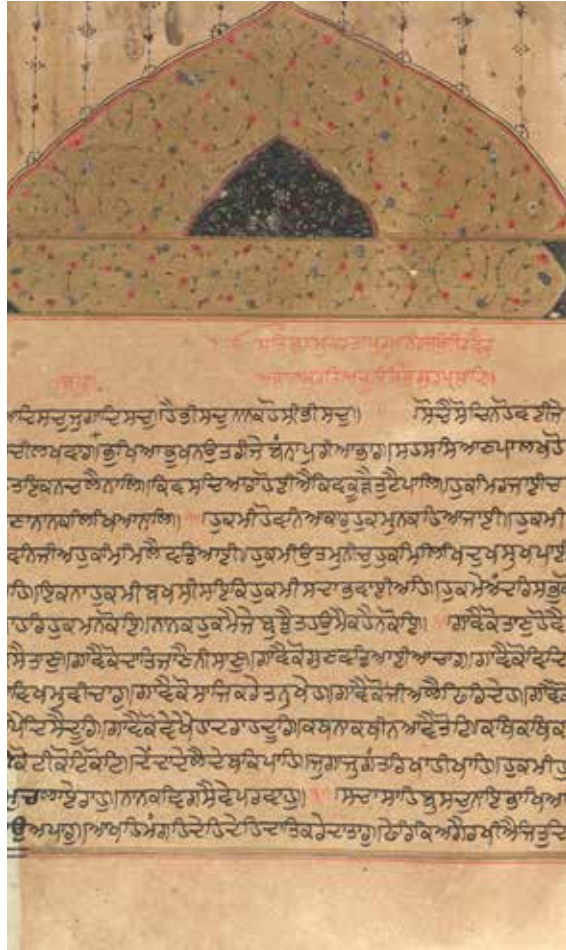 ੴ ਸਤਿਨਾਮੁਕਰਤਾਪੁਰਖੁਨਿਰਭਉਨਿਰਵੈਰੁ
ਅਕਾਲਮੂਰਤਿਅਜੂਨੀਸੈਭੰਗੁਰਪ੍ਰਸਾਦਿ॥
॥ਜਪੁ॥
ਆਦਿਸਚੁਜੁਗਾਦਿਸਚੁ॥ਹੈਭੀਸਚੁਨਾਨਕਹੋਸੀਭੀਸਚੁ॥ ਸੋਚੈਸੋਚਿਨਹੋਵਈਜੇ
ਭੁਖਿਆਭੁਖਨਉਤਰੀਜੇਬੰਨਾਪੁਰੀਆਭਾਰ॥ਸਹਸਸਿਆਣਪਾਲਖਹੋ
ਤਾਇਕਨਚਲੈਨਾਲਿ॥ਕਿਵਸਚਿਆਰਾਹੋਈਐਕਿਵਕੂੜੈਤੁਟੈਪਾਲਿ॥ਹੁਕਮਿਰਜਾਈਚ
ਣਾਨਾਨਕਲਿਖਿਆਨਾਲਿ॥੧॥ਹੁਕਮੀਹੋਵਨਿਆਕਾਰਹੁਕਮੁਨਕਹਿਆਜਾਈ॥ਹੁਕਮੀ
ਵਨਿਜੀਅਹੁਕਮਿਮਿਲੈਵਡਿਆਈ॥ਹੁਕਮੀਉਤਮੁਨੀਚੁਹੁਕਮਿਲਿਖਿਦੁਖਸੁਖਪਾਈ
ਹਿ॥ਇਕਨਾਹੁਕਮੀਬਖਸੀਸਇਕਿਹੁਕਮੀਸਦਾਭਵਾਈਅਹਿ॥ਹੁਕਮੈਅੰਦਰਿਸਭੁਕੋ
ਹਰਿਹੁਕਮਨਕੋਇ॥ਨਾਨਕਹੁਕਮੈਜੇਬੁਝੈਤਹਉਮੈਕਹੈਨਕੋਇ॥੨॥ਗਾਵੈਕੋਤਾਣੁਹੋਵੈ
ਸੈਤਾਣੁ॥ਗਾਵੈਕੋਦਾਤਿਜਾਣੈਨੀਸਾਣੁ॥ਗਾਵੈਕੋਗੁਣਵਡਿਆਈਆਚਾਰ॥ਗਾਵੈਕੋਵਿਦਿ
ਵਿਖਮੁਵੀਚਾਰੁ॥ਗਾਵੈਕੋਸਾਜਿਕਰੇਤਨੁਖੇਹ॥ਗਾਵੈਕੋਜੀਅਲੈਫਿਰਿਦੇਹ॥ਗਾਵੈਕੋ
ਪੈਦਿਸੈਦੂਰਿ॥ਗਾਵੈਕੋਵੇਖੈਹਾਦਰਾਹਦੂਰਿ॥ਕਥਨਾਕਥੀਨਆਵੈਤੋਟਿ॥ਕਥਿਕਥਿਕ
ਕੋਟੀਕੋਟਿਕੋਟਿ॥ਦੇਂਦਾਦੇਲੈਦੇਥਕਿਪਾਹਿ॥ਜੁਗਾਜੁਗੰਤਰਿਖਾਹੀਖਾਹਿ॥ਹੁਕਮੀਹੁ
ਚਲਾਏਰਾਹੁ॥ਨਾਨਕਵਿਗਸੈਵੇਪਰਵਾਹੁ॥੩॥ਸਾਚਾਸਾਹਿਬੁਸਚੁਨਾਇਭਾਖਿਆ
ਉਅਪਾਰੁ॥ਆਖਹਿਮੰਗਹਿਦੇਹਿਦੇਹਿਦਾਤਿਕਰੇਦਾਤਾਰੁ॥ਫੇਰਿਕਿਅਗੈਰਖੀਐਜਿਤੁਦਿ